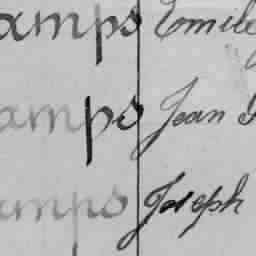 amps Emile
amps Jean
amps Joseph